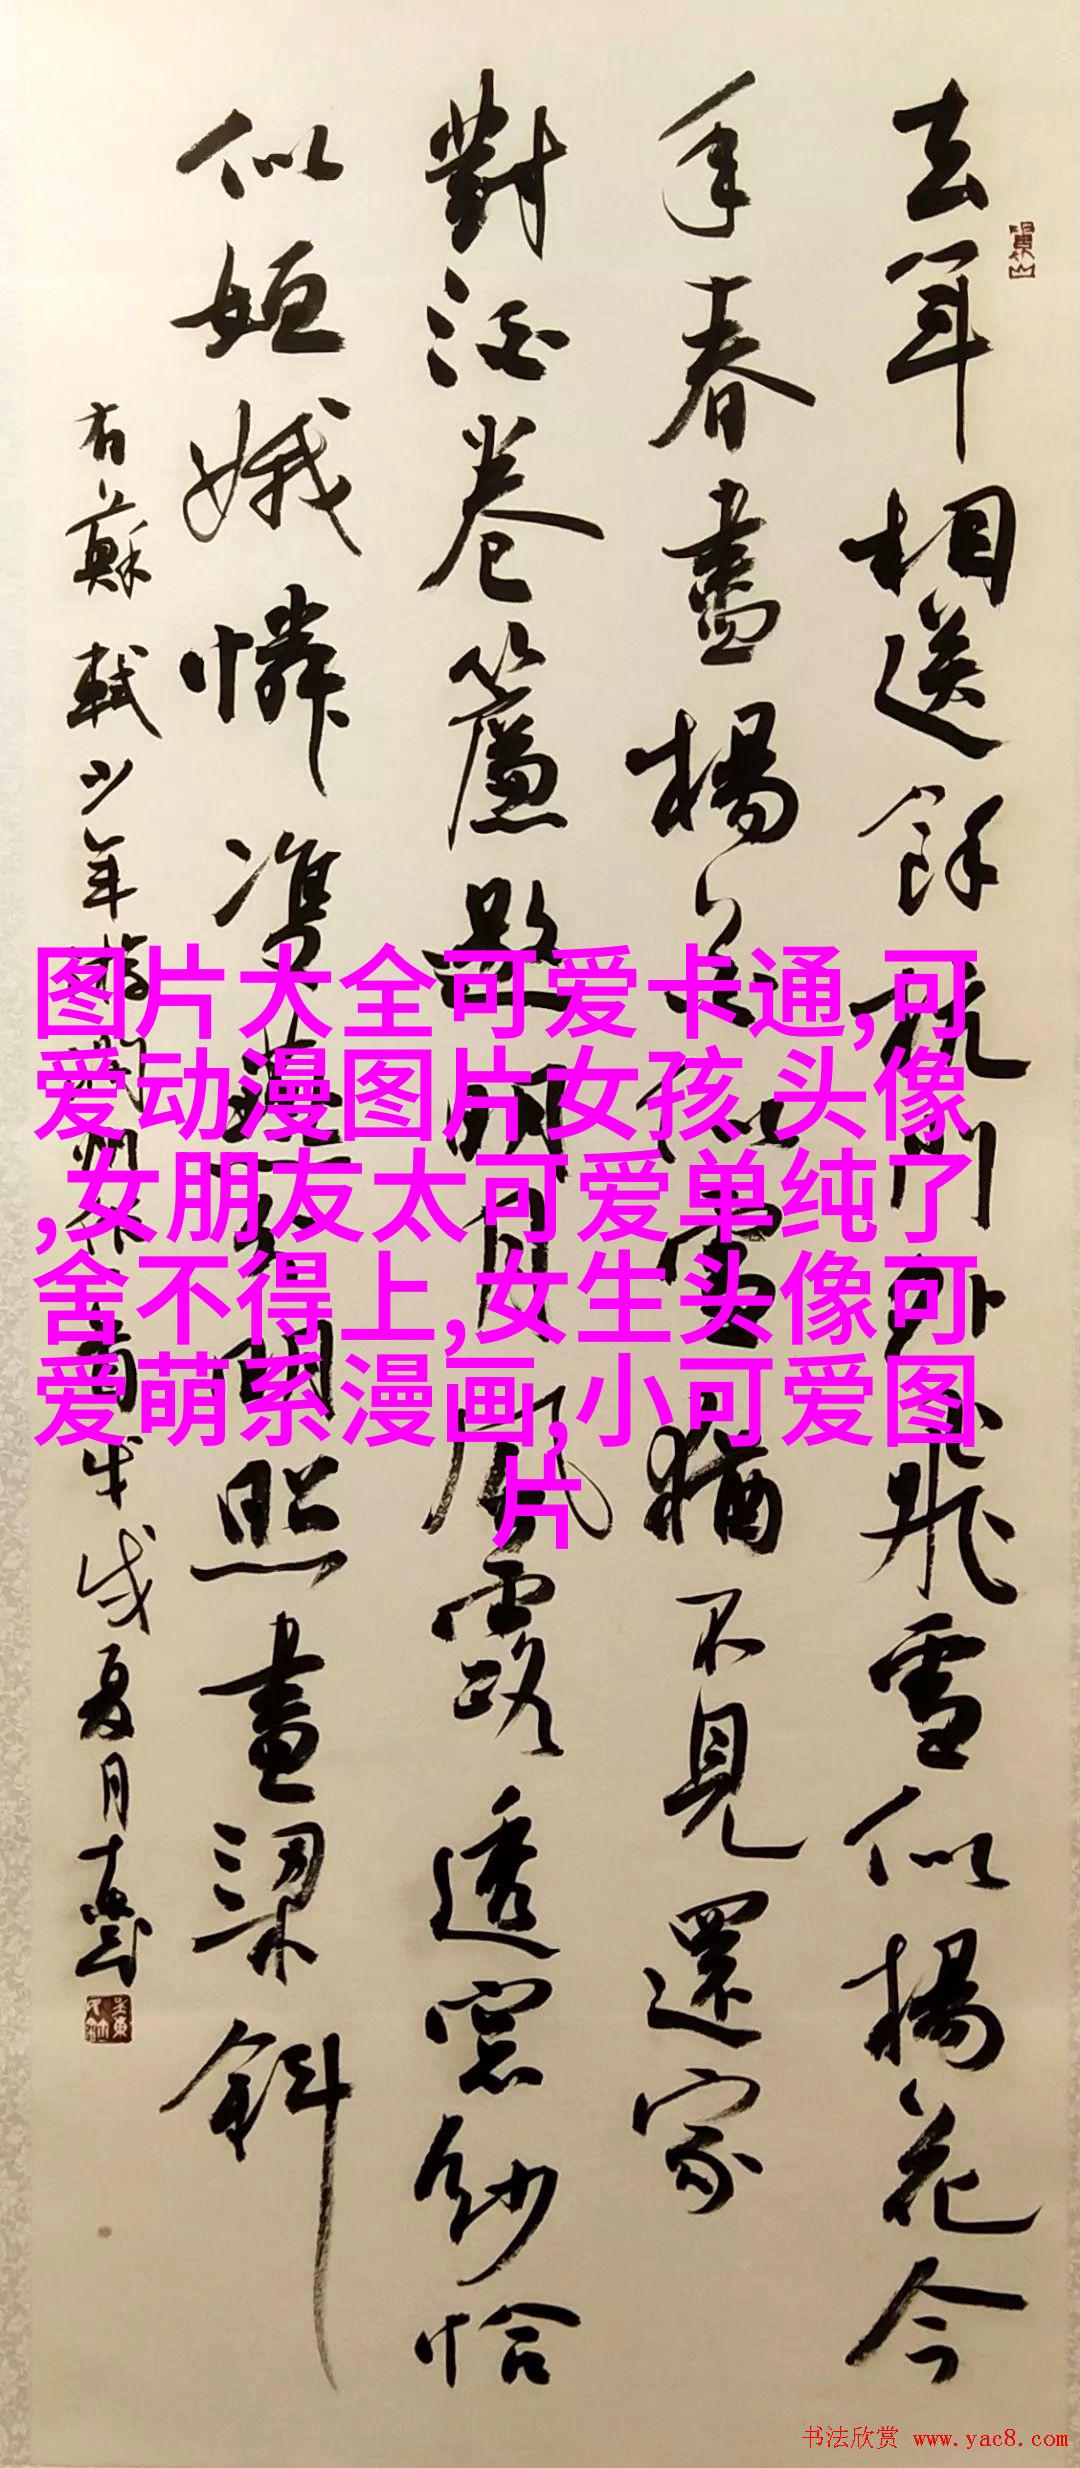 去年相送餘杭門外飛雪似楊花今
年春盡楊花似雪猶不見還家
對酒卷簾邀明月風露透窓紗恰
似姮娥憐雙燕分明照畫梁斜
右蘇軾少年游潤州作
戊戌夏月
图片大全可爱卡通,可
爱动漫图片女孩 头像
,女朋友太可爱单纯了
舍不得上,女生头像可
爱萌系漫画,小可爱图
片
书法欣赏 www.yac8.com